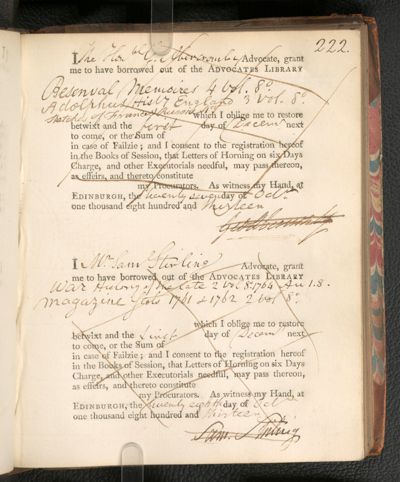 222.
I The Hon. G. Abercromby Advocate, grant
me to have borrowed out of the ADVOCATES LIBRARY
Besenval Memoires 4 vol. 8º
Adolphus Hist. England 3 vol. 8º
which I oblige me to restore
betwixt and the first day of Decem next
to come, or the Sum of
in case of Failzie; and I consent to the registration hereof
in the Books of Session, that Letters of Horning on six Days
Charge, and other Executorials needful, may pass thereon,
as effeirs, and thereto constitute
my Procurators. As witness my Hand, at
EDINBURGH, the twenty seven day of Octr.
one thousand eight hundred and thirteen
I Mr. Saml Stirling Advocate, grant
me to have borrowed out of the ADVOCATES LIBRARY
War History of the late 2 vol 8º 1764
Magazine 1761 & 1762 2 vol 8º
which I oblige me to restore
betwixt and the first day of Decem next
to come, or the Sum of
in case of Failzie; and I consent to the registration hereof
in the Books of Session, that Letters of Horning on six Days
Charge, and other Executorials needful, may pass thereon,
as effeirs, and thereto constitute
my Procurators. As witness my Hand, at
EDINBURGH, the twenty eighth day of Octr.
one thousand eight hundred and thirteen
Sam. Stirling